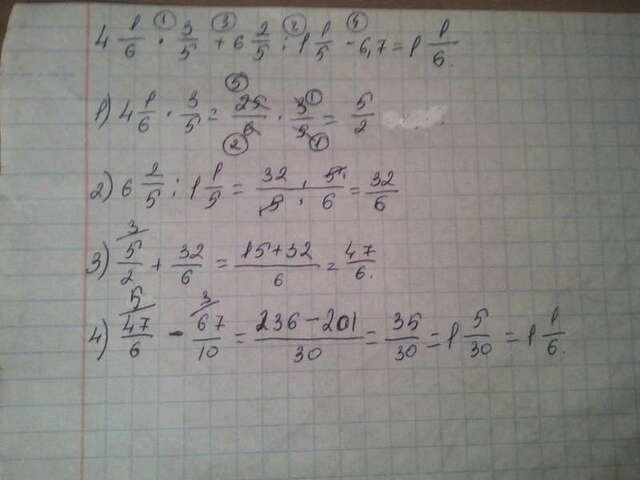 4 1/6 · 3/5 + 6 2/5 : 1 1/5 - 6,7 = 1 1/6.
1) 4 1/6 · 3/5 = 25/6 · 3/5 = 5/2
2) 6 2/5 : 1 1/5 = 32/5 · 5/6 = 32/6
3) 5/2 + 32/6 = (15+32)/6 = 47/6.
4) 47/6 - 67/10 = (236-201)/30 = 35/30 = 1 5/30 = 1 1/6.